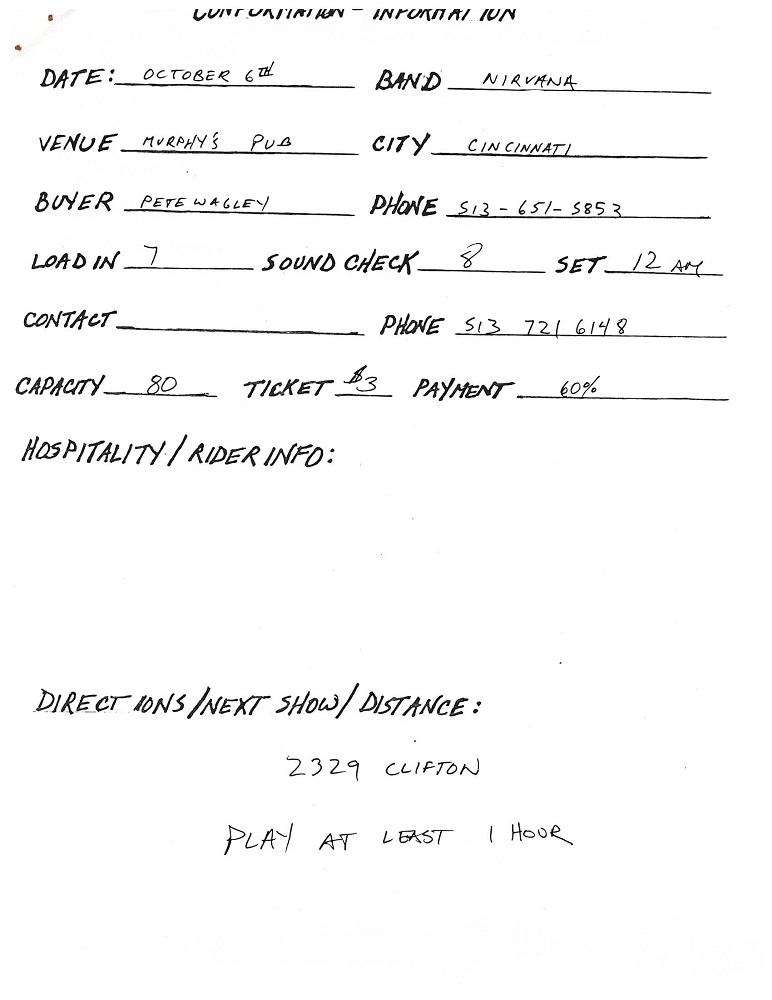 CONFORMATION - INFORMATION
DATE: OCTOBER 6TH BAND NIRVANA
VENUE MURPHY'S PUB CITY CINCINNATI
BUYER PETE WAGLEY PHONE 513-651-5853
LOAD IN 7 SOUND CHECK 8 SET 12 AM
CONTACT PHONE 513 721 6148
CAPACITY 80 TICKET $3 PAYMENT 60%
HOSPITALITY/RIDER INFO:
DIRECTIONS/NEXT SHOW/DISTANCE:
2329 CLIFTON
PLAY AT LEAST 1 HOUR